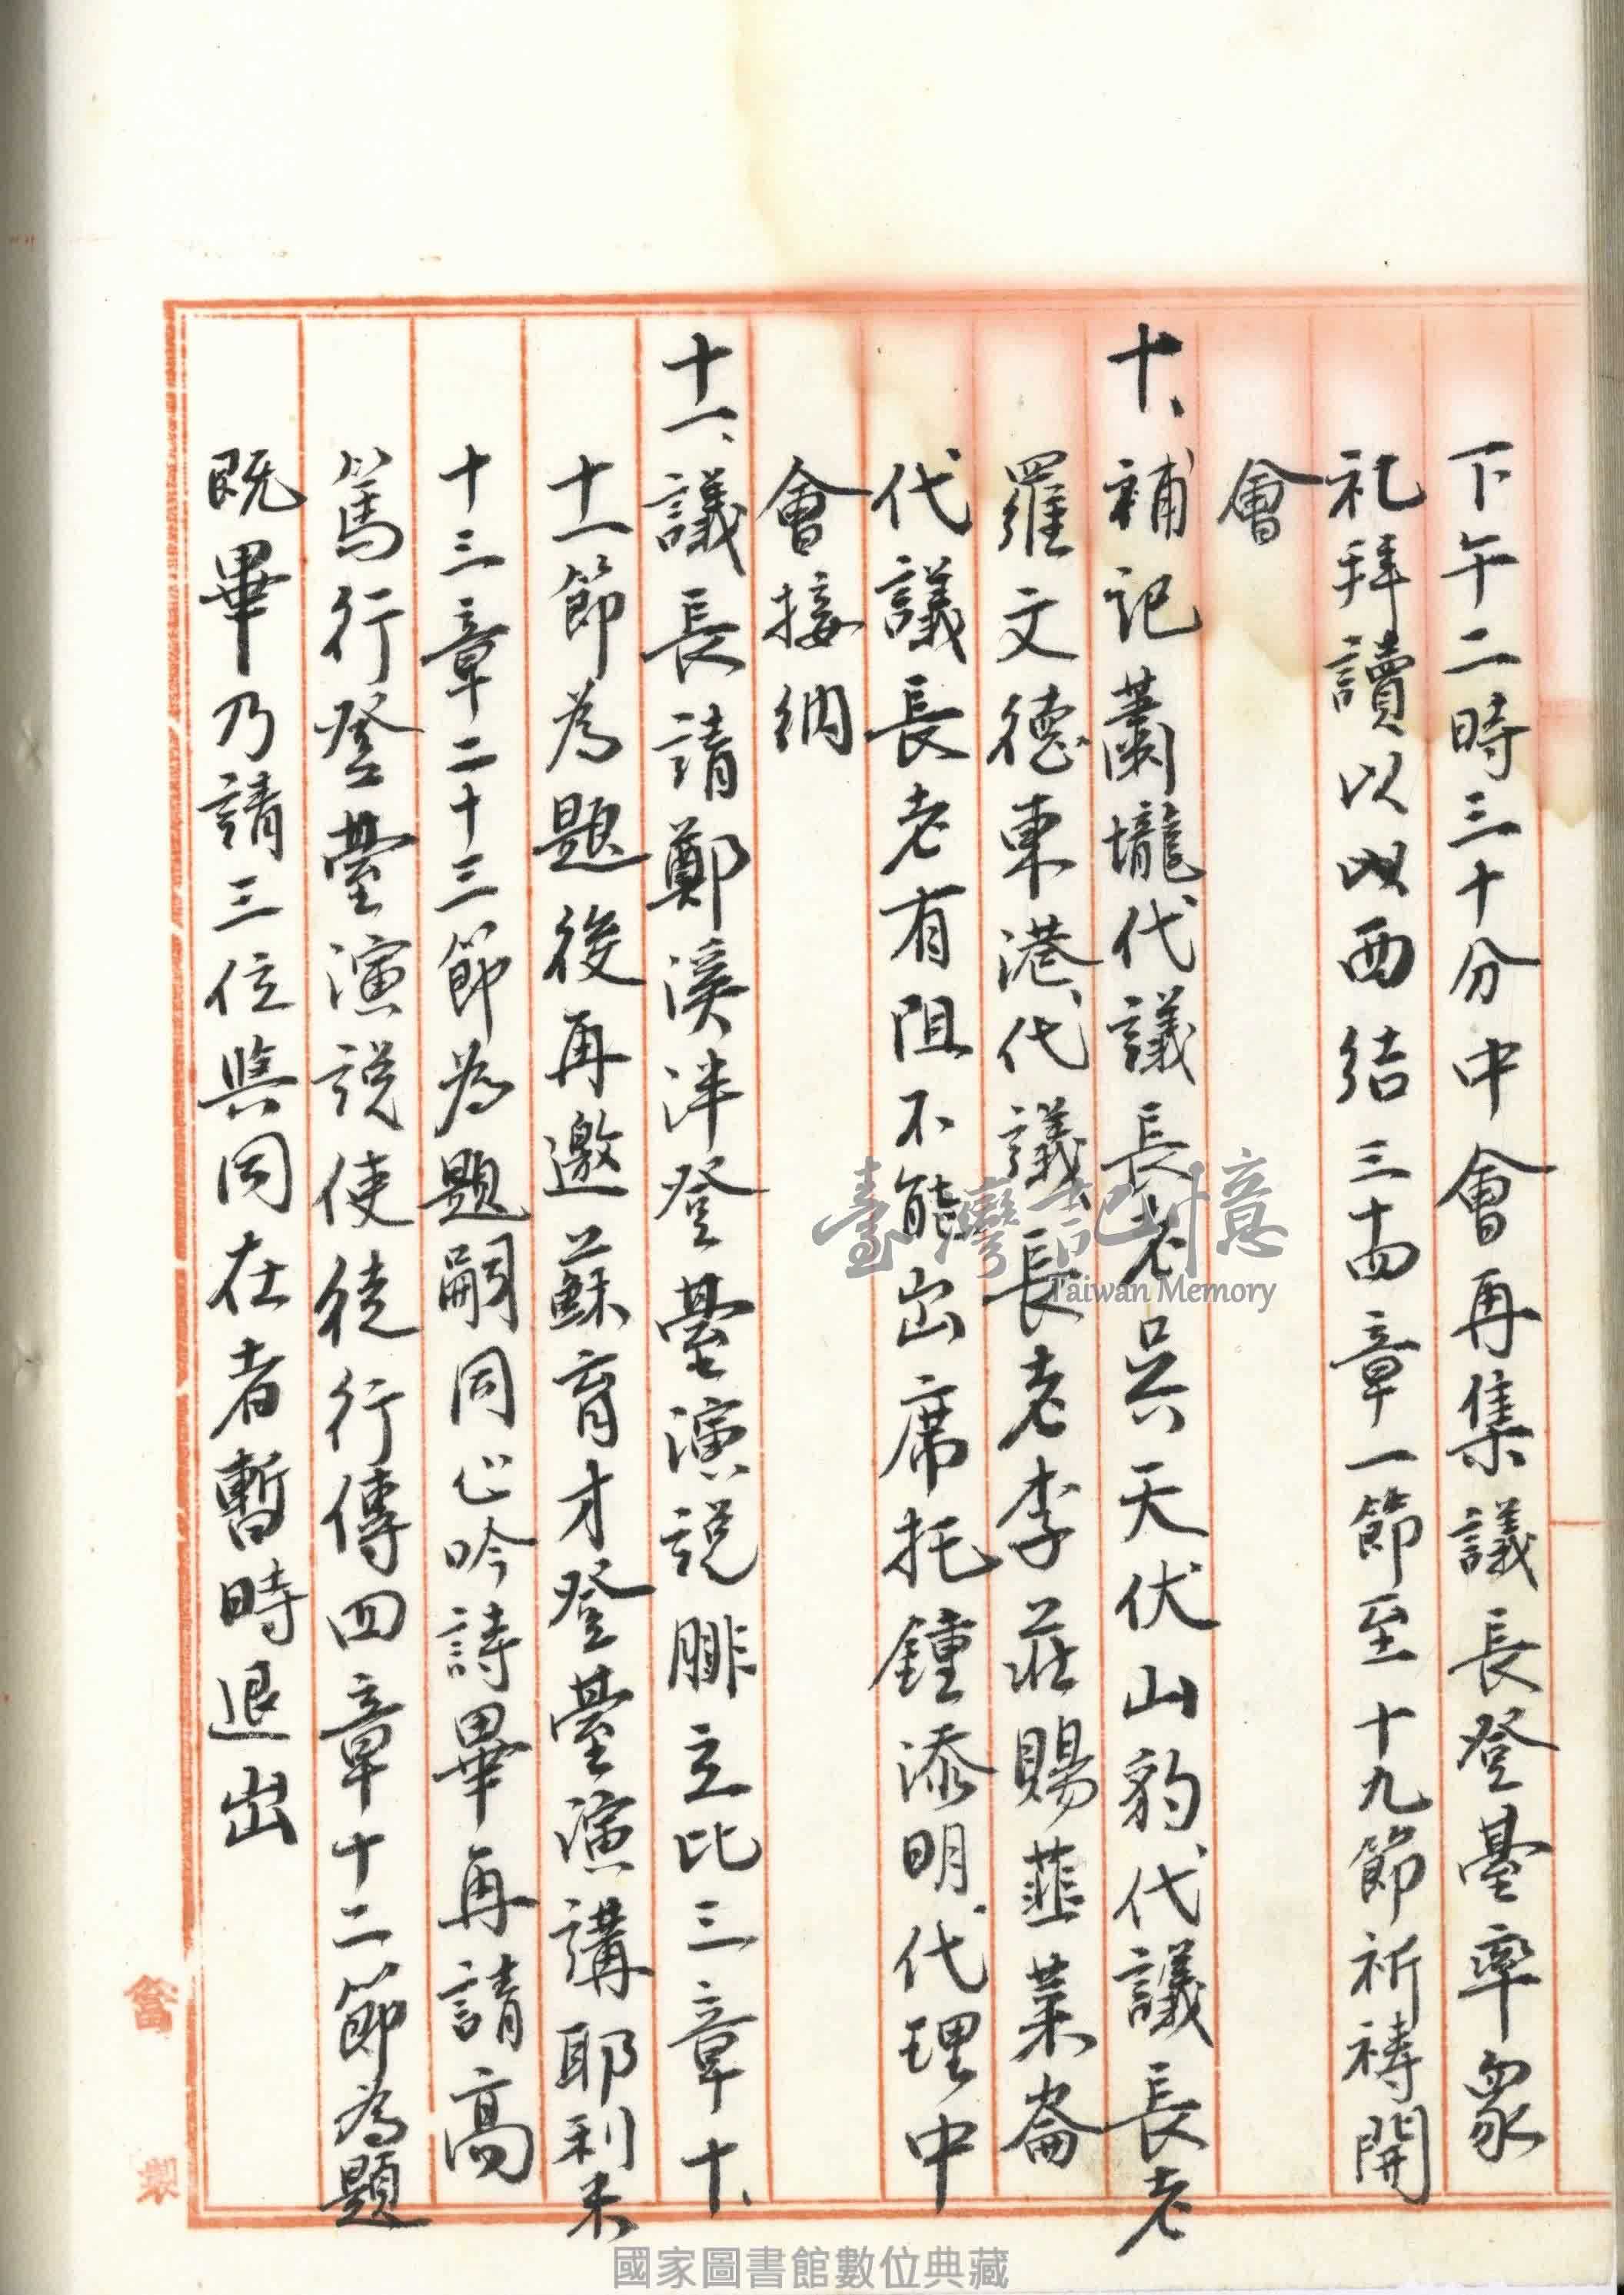 下午二時三十分中會再集議長登臺率眾
礼拜讀以以西结三十四章一節至十九節祈禱開
會
十、補记蕭壠代議長老吳天伏山豹、代議長老
羅文德東港、代議長老李莊賜韮菜崙
代議長老有阻不能出席托鍾添明、代理中
會接納
十一、議長請鄭溪泮登臺演說腓立比三章十、
十一節為題後再邀蘇育才登臺演講耶利米
十三章二十三節為題嗣同心吟詩畢再請高
篤行登臺演說使徒行傳四章十二節為題
既畢乃請三位與同在者暫時退出
臺灣記憶
Taiwan Memory
製
國家圖書館數位典藏